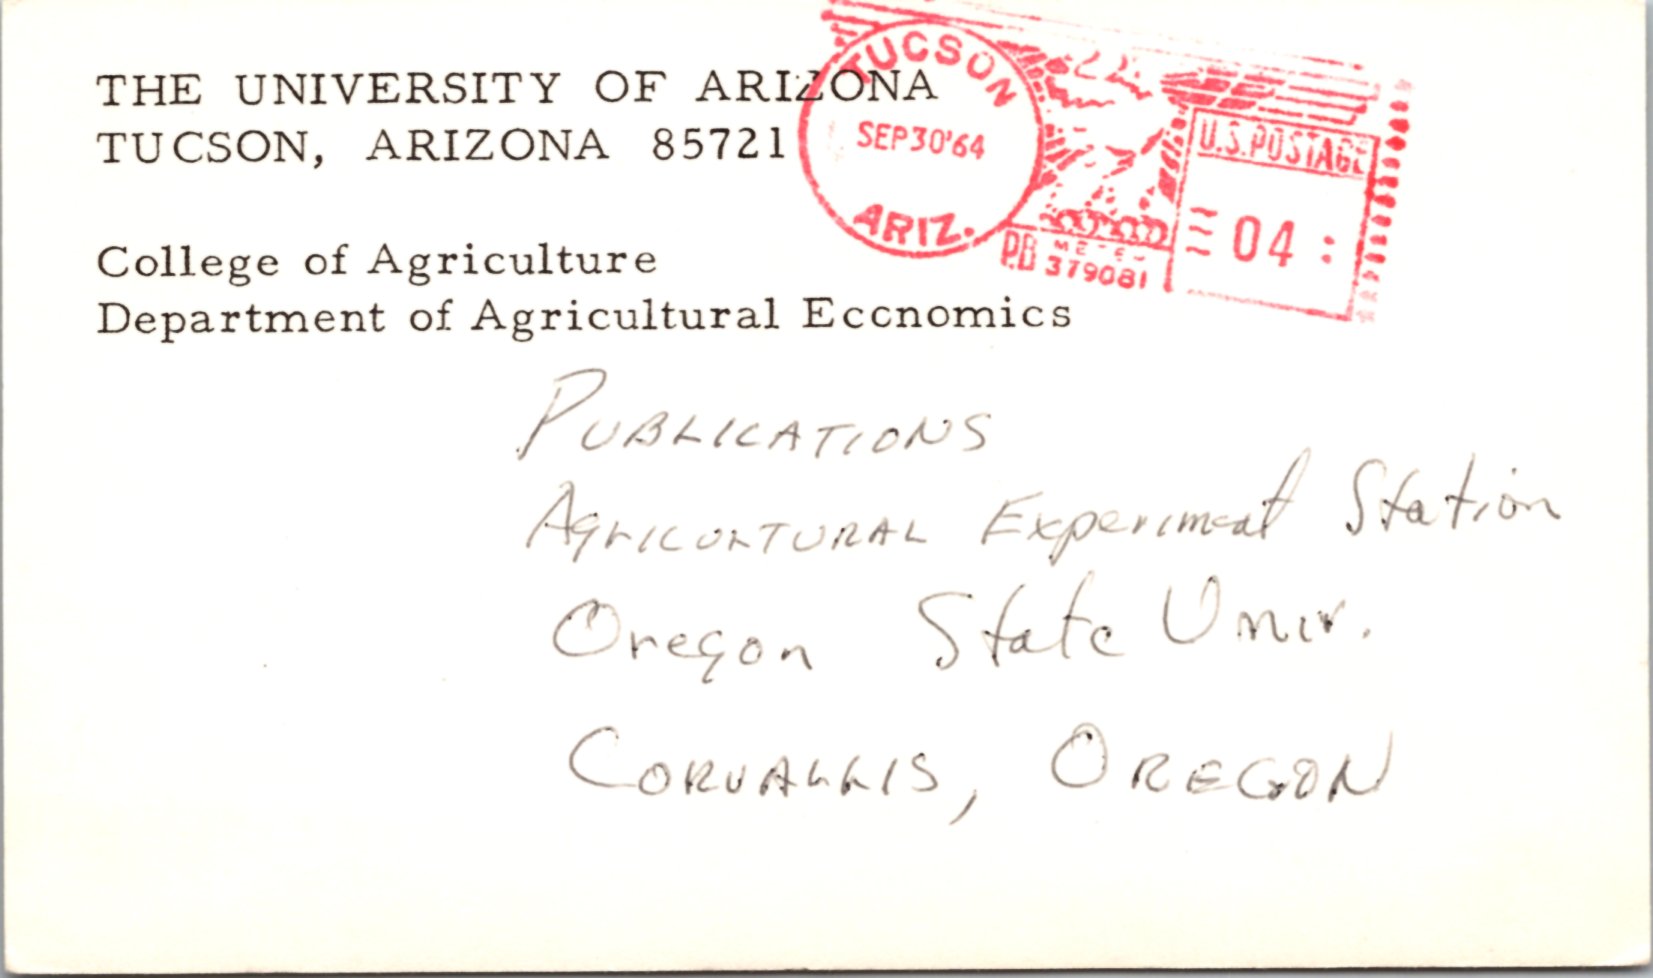 THE UNIVERSITY OF ARIZONA
TUCSON, ARIZONA 85721
College of Agriculture
Department of Agricultural Eccnomics
TUCSON
SEP30'64
ARIZ.
U.S. POSTAGE
04
P.B METER
379081
PUBLICATIONS
AGRICULTURAL Experiment Station
Oregon State Univ.
CORVALLIS, OREGON